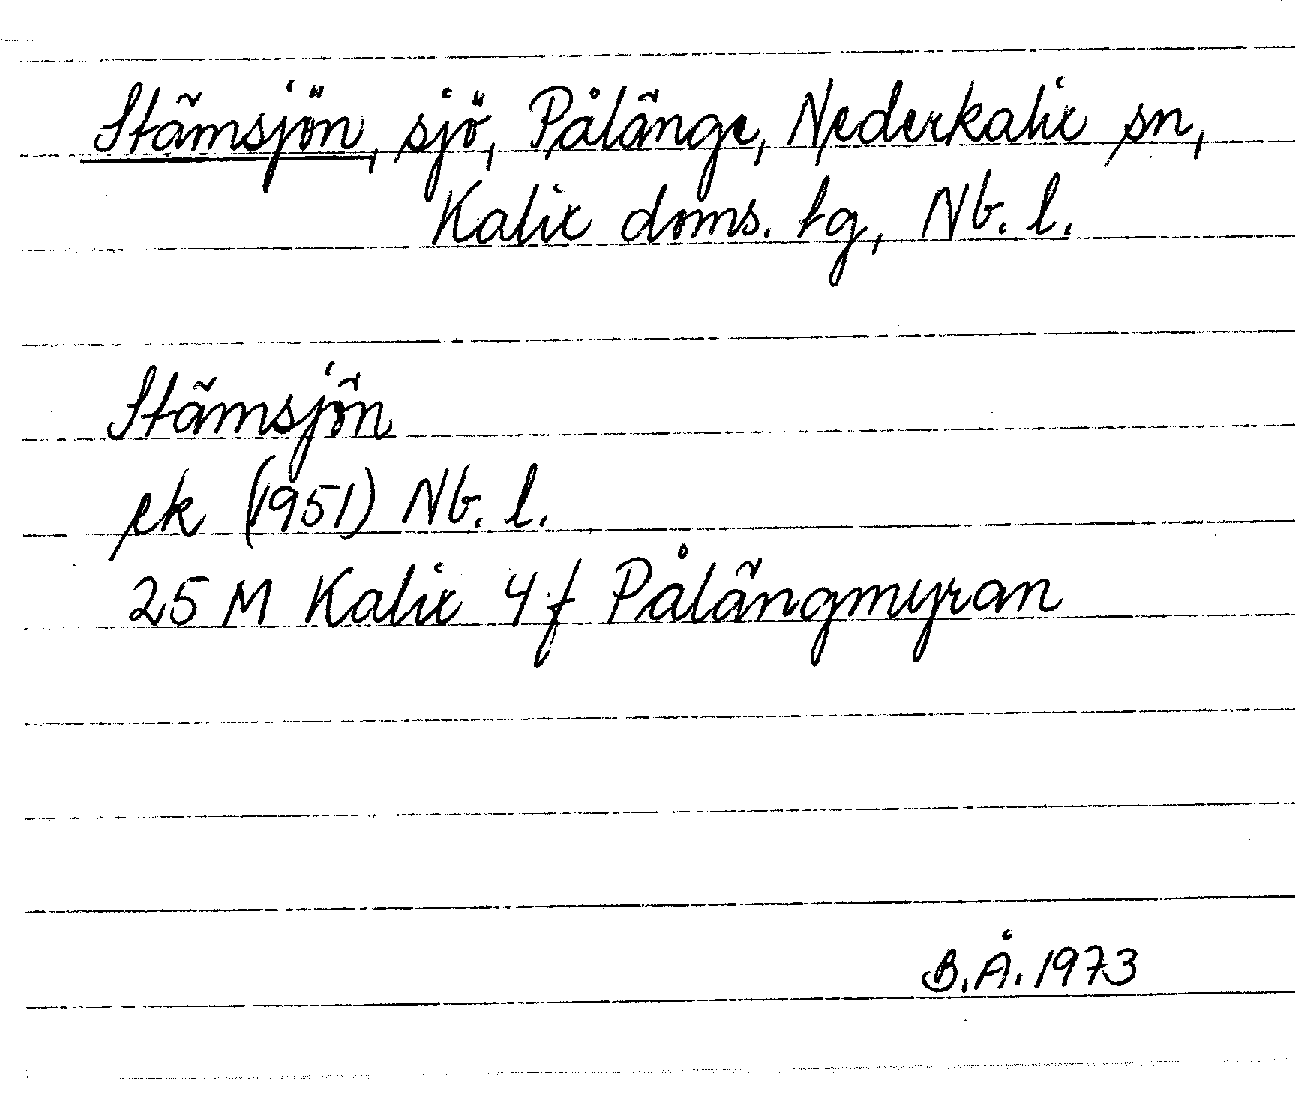 Stämsjön, sjö, Pålänge, Nederkalix sn,
Kalix doms. tg, Nb. l.
Stämsjön
ek (1951) Nb. l.
25 M Kalix 4 f Pålängmyran
B.Å. 1973